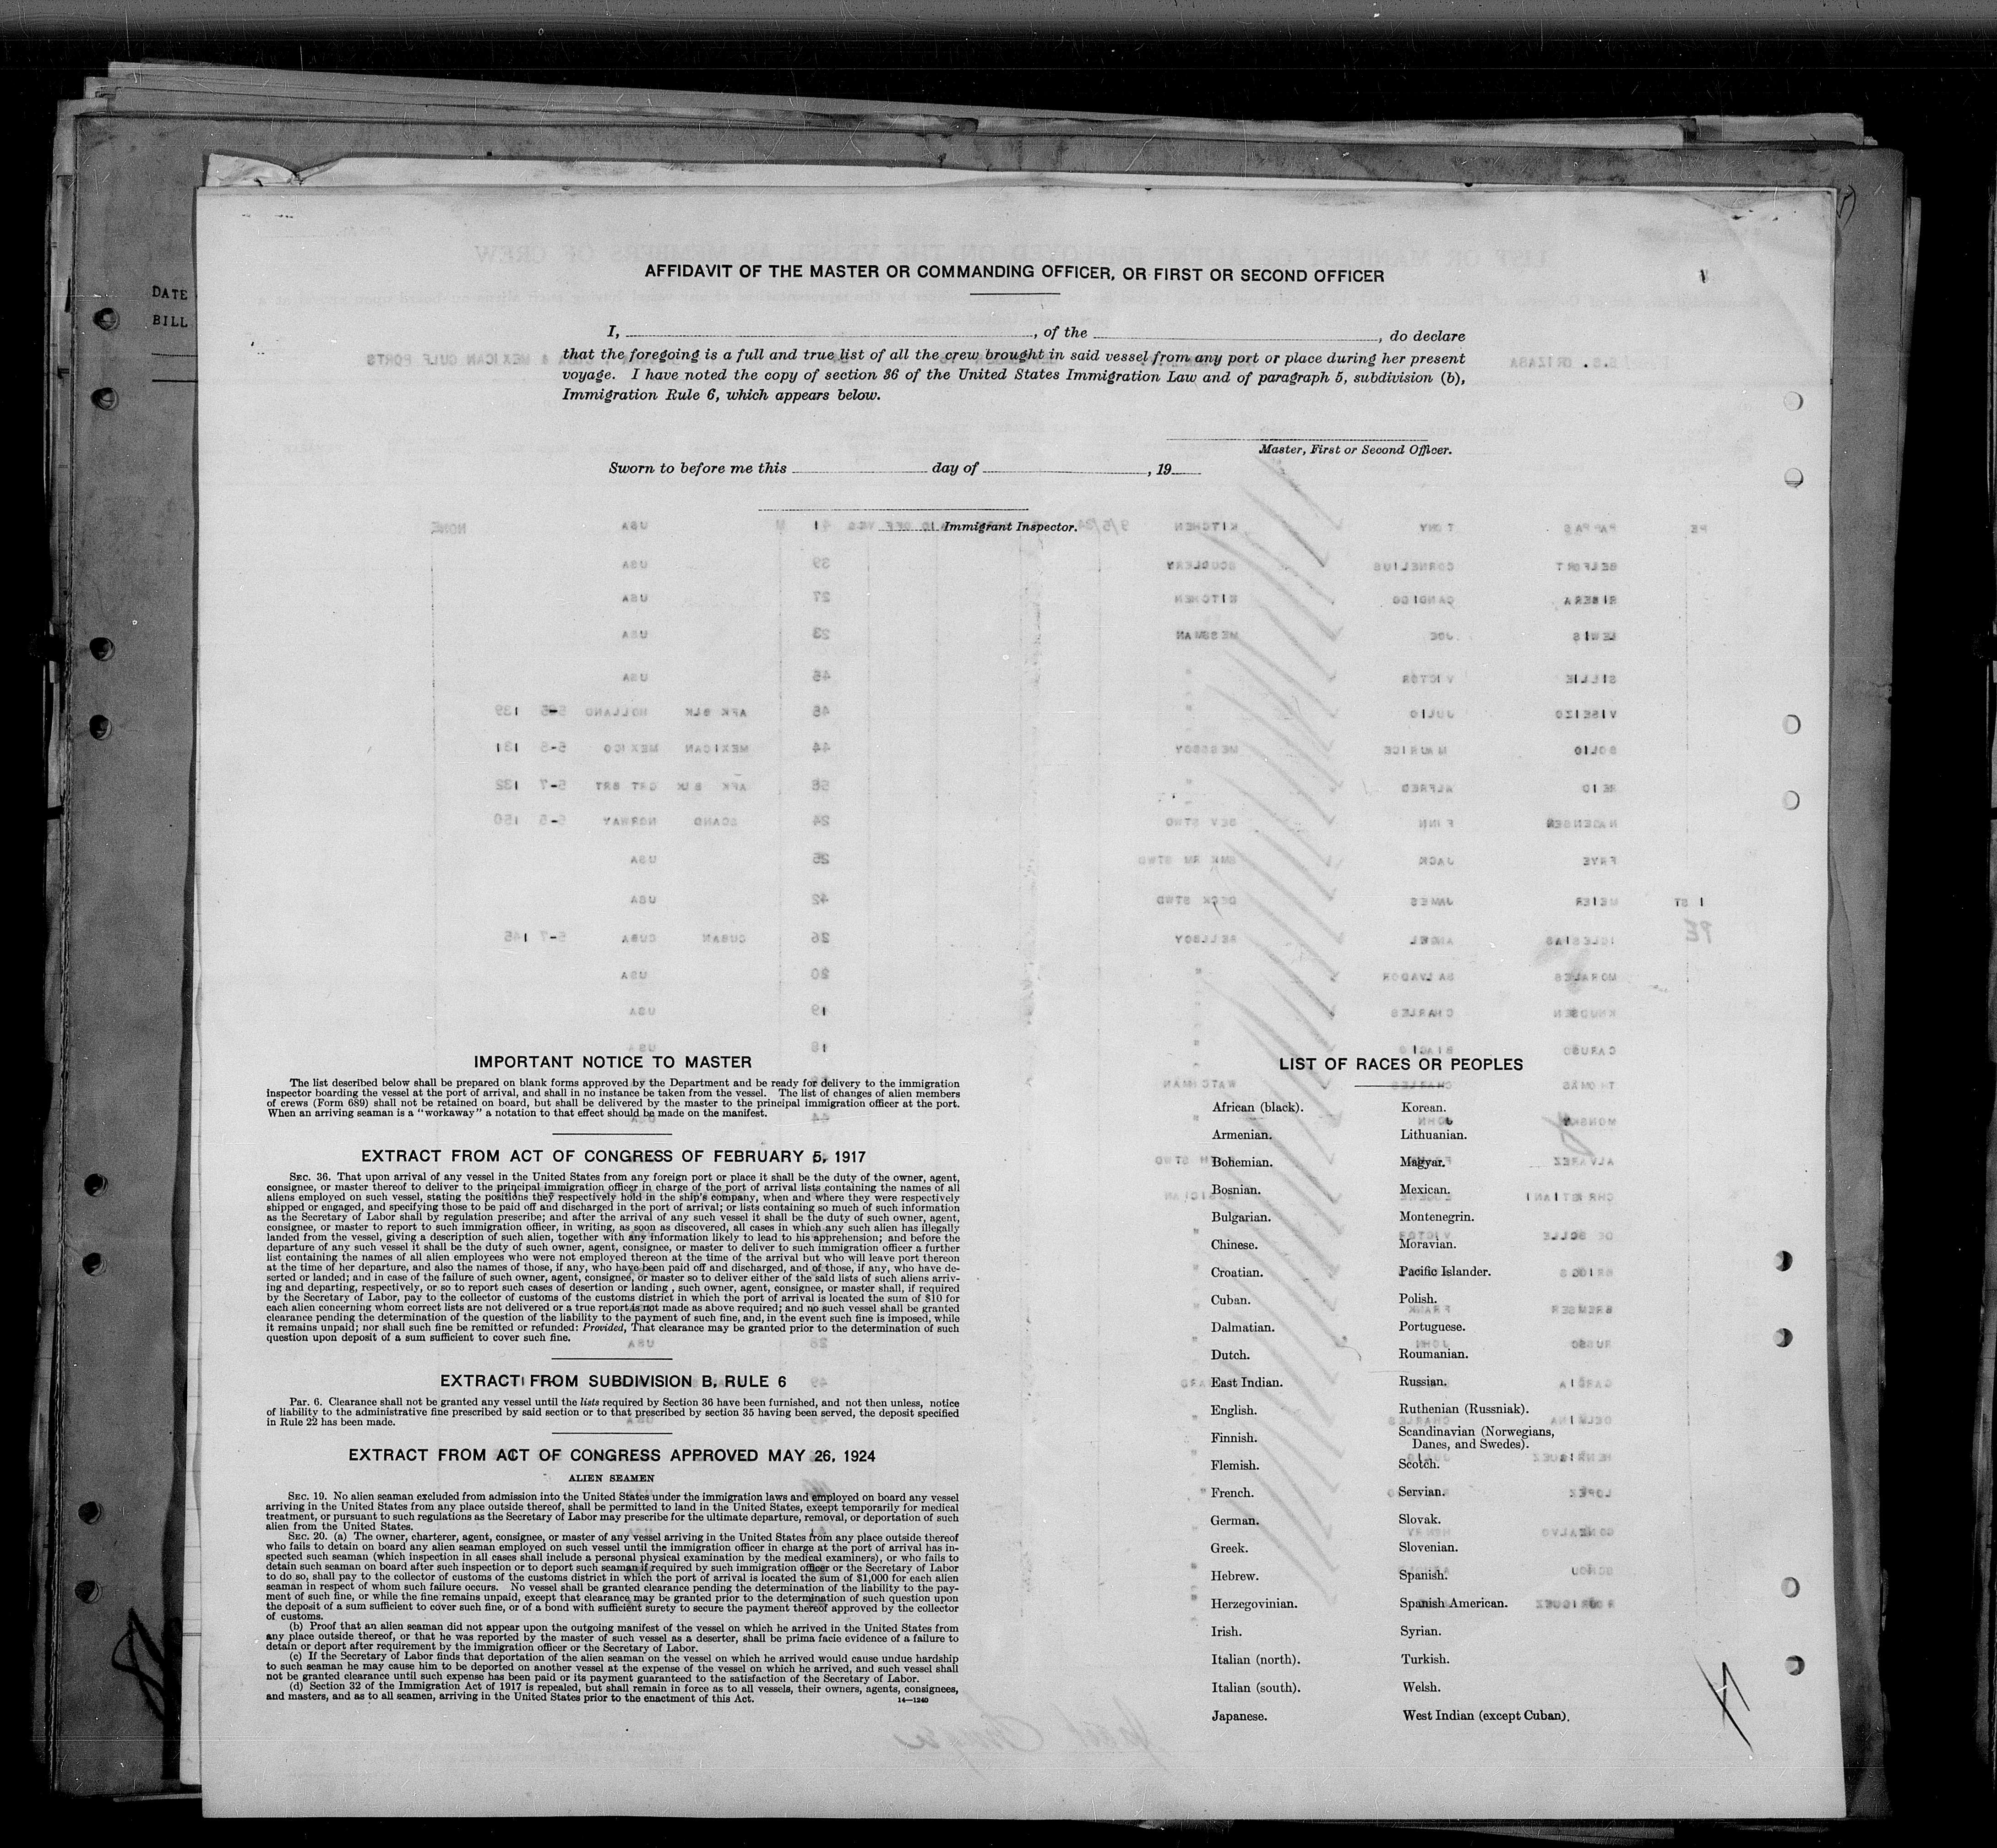 DATE
BILL
AFFIDAVIT OF THE MASTER OR COMMANDING OFFICER, OR FIRST OR SECOND OFFICER
I, , of the , do declare
that the foregoing is a full and true list of all the crew brought in said vessel from any port or place during her present
voyage. I have noted the copy of section 36 of the United States Immigration Law and of paragraph 5, subdivision (b),
Immigration Rule 6, which appears below.
Master, First or Second Officer.
Sworn to before me this day of , 19
Immigrant Inspector.
IMPORTANT NOTICE TO MASTER
The list described below shall be prepared on blank forms approved by the Department and be ready for delivery to the immigration
inspector boarding the vessel at the port of arrival, and shall in no instance be taken from the vessel. The list of changes of alien members
of crews (Form 689) shall not be retained on board, but shall be delivered by the master to the principal immigration officer at the port.
When an arriving seaman is a "workaway" a notation to that effect should be made on the manifest.
EXTRACT FROM ACT OF CONGRESS OF FEBRUARY 5, 1917
SEC. 36. That upon arrival of any vessel in the United States from any foreign port or place it shall be the duty of the owner, agent,
consignee, or master thereof to deliver to the principal immigration officer in charge of the port of arrival lists containing the names of all
aliens employed on such vessel, stating the positions they respectively hold in the ship's company, when and where they were respectively
shipped or engaged, and specifying those to be paid off and discharged in the port of arrival; or lists containing so much of such information
as the Secretary of Labor shall by regulation prescribe; and after the arrival of any such vessel it shall be the duty of such owner, agent,
consignee, or master to report to such immigration officer, in writing, as soon as discovered, all cases in which any such alien has illegally
landed from the vessel, giving a description of such alien, together with any information likely to lead to his apprehension; and before the
departure of any such vessel it shall be the duty of such owner, agent, consignee, or master to deliver to such immigration officer a further
list containing the names of all alien employees who were not employed thereon at the time of the arrival but who will leave port thereon
at the time of her departure, and also the names of those, if any, who have been paid off and discharged, and of those, if any, who have de-
serted or landed; and in case of the failure of such owner, agent, consignee, or master so to deliver either of the said lists of such aliens arriv-
ing and departing, respectively, or so to report such cases of desertion or landing, such owner, agent, consignee, or master shall, if required
by the Secretary of Labor, pay to the collector of customs of the customs district in which the port of arrival is located the sum of $10 for
each alien concerning whom correct lists are not delivered or a true report is not made as above required; and no such vessel shall be granted
clearance pending the determination of the question of the liability to the payment of such fine, and, in the event such fine is imposed, while
it remains unpaid; nor shall such fine be remitted or refunded: Provided, That clearance may be granted prior to the determination of such
question upon deposit of a sum sufficient to cover such fine.
EXTRACT FROM SUBDIVISION B, RULE 6
Par. 6. Clearance shall not be granted any vessel until the lists required by Section 36 have been furnished, and not then unless, notice
of liability to the administrative fine prescribed by said section or to that prescribed by section 35 having been served, the deposit specified
in Rule 22 has been made.
EXTRACT FROM ACT OF CONGRESS APPROVED MAY 26, 1924
ALIEN SEAMEN
SEC. 19. No alien seaman excluded from admission into the United States under the immigration laws and employed on board any vessel
arriving in the United States from any place outside thereof, shall be permitted to land in the United States, except temporarily for medical
treatment, or pursuant to such regulations as the Secretary of Labor may prescribe for the ultimate departure, removal, or deportation of such
alien from the United States.
SEC. 20. (a) The owner, charterer, agent, consignee, or master of any vessel arriving in the United States from any place outside thereof
who fails to detain on board any alien seaman employed on such vessel until the immigration officer in charge at the port of arrival has in-
spected such seaman (which inspection in all cases shall include a personal physical examination by the medical examiners), or who fails to
detain such seaman on board after such inspection or to deport such seaman if required by such immigration officer or the Secretary of Labor
to do so, shall pay to the collector of customs of the customs district in which the port of arrival is located the sum of $1,000 for each alien
seaman in respect of whom such failure occurs. No vessel shall be granted clearance pending the determination of the liability to the pay-
ment of such fine, or while the fine remains unpaid, except that clearance may be granted prior to the determination of such question upon
the deposit of a sum sufficient to cover such fine, or of a bond with sufficient surety to secure the payment thereof approved by the collector
of customs.
(b) Proof that an alien seaman did not appear upon the outgoing manifest of the vessel on which he arrived in the United States from
any place outside thereof, or that he was reported by the master of such vessel as a deserter, shall be prima facie evidence of a failure to
detain or deport after requirement by the immigration officer or the Secretary of Labor.
(c) If the Secretary of Labor finds that deportation of the alien seaman on the vessel on which he arrived would cause undue hardship
to such seaman he may cause him to be deported on another vessel at the expense of the vessel on which he arrived, and such vessel shall
not be granted clearance until such expense has been paid or its payment guaranteed to the satisfaction of the Secretary of Labor.
(d) Section 32 of the Immigration Act of 1917 is repealed, but shall remain in force as to all vessels, their owners, agents, consignees,
and masters, and as to all seamen, arriving in the United States prior to the enactment of this Act.
14—1240
LIST OF RACES OR PEOPLES
African (black).
Armenian.
Bohemian.
Bosnian.
Bulgarian.
Chinese.
Croatian.
Cuban.
Dalmatian.
Dutch.
East Indian.
English.
Finnish.
Flemish.
French.
German.
Greek.
Hebrew.
Herzegovinian.
Irish.
Italian (north).
Italian (south).
Japanese.
Korean.
Lithuanian.
Magyar.
Mexican.
Montenegrin.
Moravian.
Pacific Islander.
Polish.
Portuguese.
Roumanian.
Russian.
Ruthenian (Russniak).
Scandinavian (Norwegians,
Danes, and Swedes).
Scotch.
Servian.
Slovak.
Slovenian.
Spanish.
Spanish American.
Syrian.
Turkish.
Welsh.
West Indian (except Cuban).